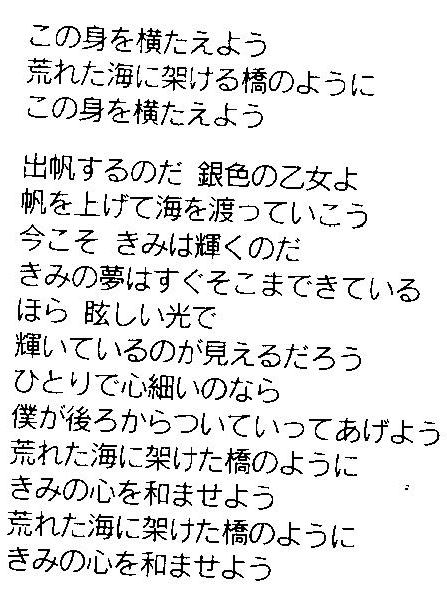 この身を横たえよう
荒れた海に架ける橋のように
この身を横たえよう
出帆するのだ 銀色の乙女よ
帆を上げて海を渡っていこう
今こそ きみは輝くのだ
きみの夢はすぐそこまできている
ほら 眩しい光で
輝いているのが見えるだろう
ひとりで心細いのなら
僕が後ろからついていってあげよう
荒れた海に架けた橋のように
きみの心を和ませよう
荒れた海に架けた橋のように
きみの心を和ませよう